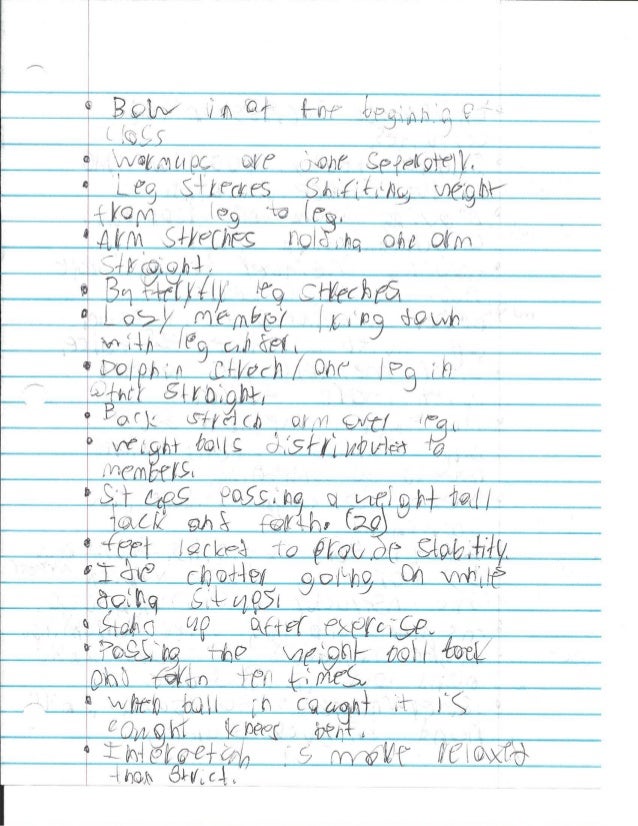 • Bow in at the beginning of
class
• Warmups are done seperately.
• Leg streches Shifiting weight
from leg to leg.
• Arm streches holding one arm
Straight.
• Butterlyfly leg streches
• Losy member lying down
with leg under.
• Dolphin strech / One leg in
other straight,
• Back stretch arm over leg.
• weight balls distributed to
members.
• Sit ups passing a weight ball
back and forth. (20)
• feet locked to provide stabitity.
• Idle chatter going on while
doing situps.
• Stand up after exercise.
• Passing the weight ball back
and forth ten times.
• when ball in caught it is
cought knees bent.
• Interaction is more relaxed
than strict.